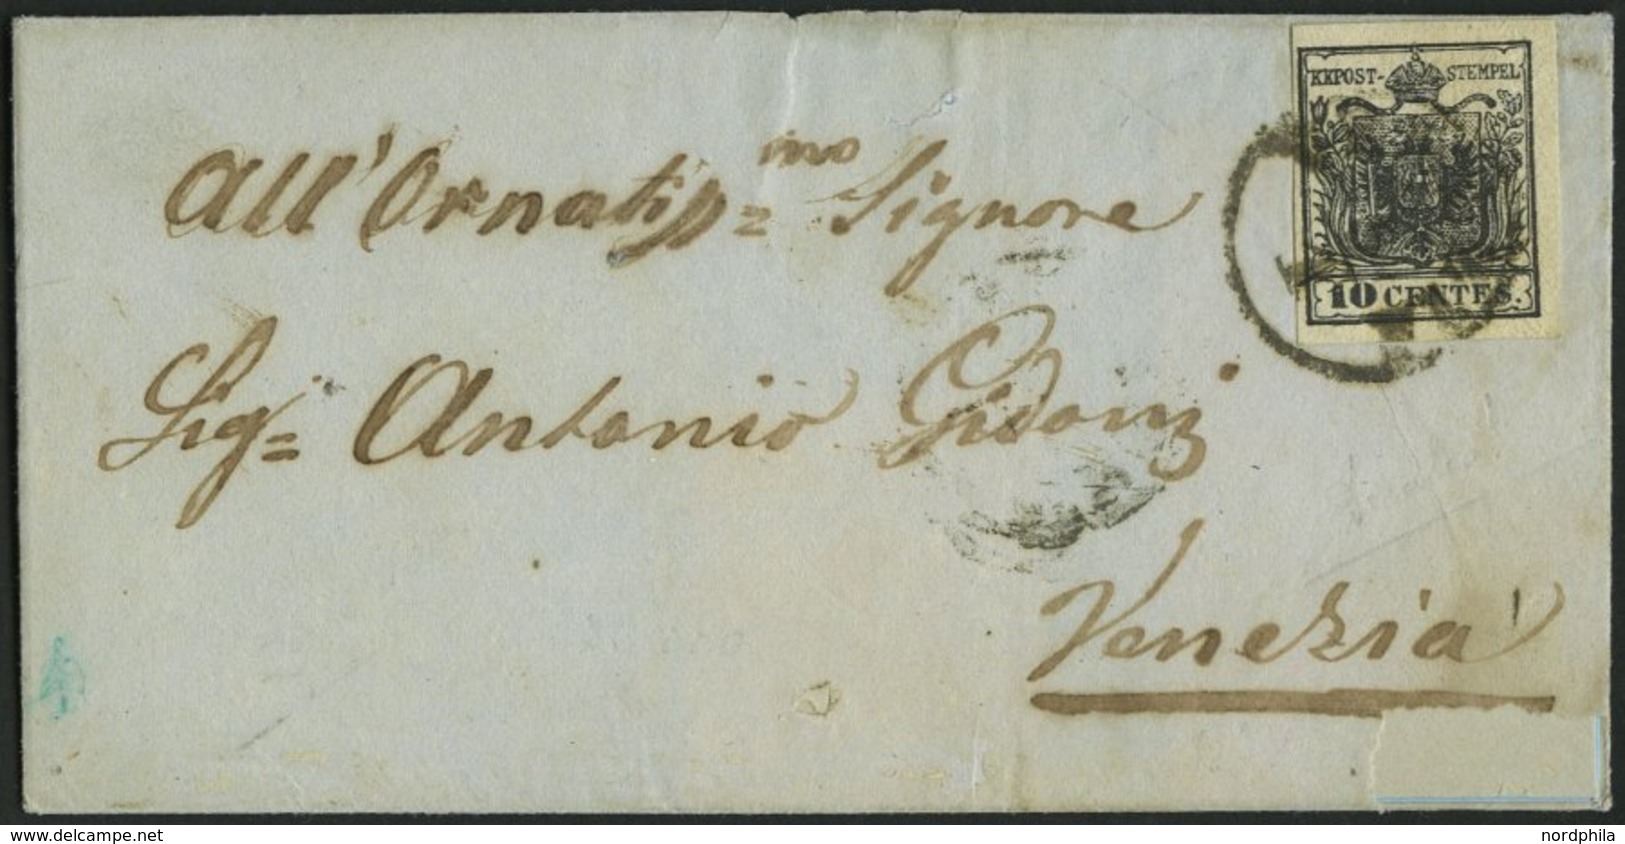 KKPOST-STEMPEL
10 CENTES.
All'Ornatiss=imo Signore
Sig= Antonio Gidoni
Venezia
www.delcampe.net
nordphila